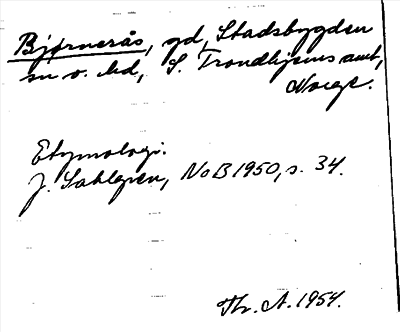 Bjørnerås, gd, Stadsbygden
sn o. hd, S. Trondhjems amt,
Norge.
Etymologi.
J. Sahlgren, NoB 1950, s. 34.
Th. A. 1954.